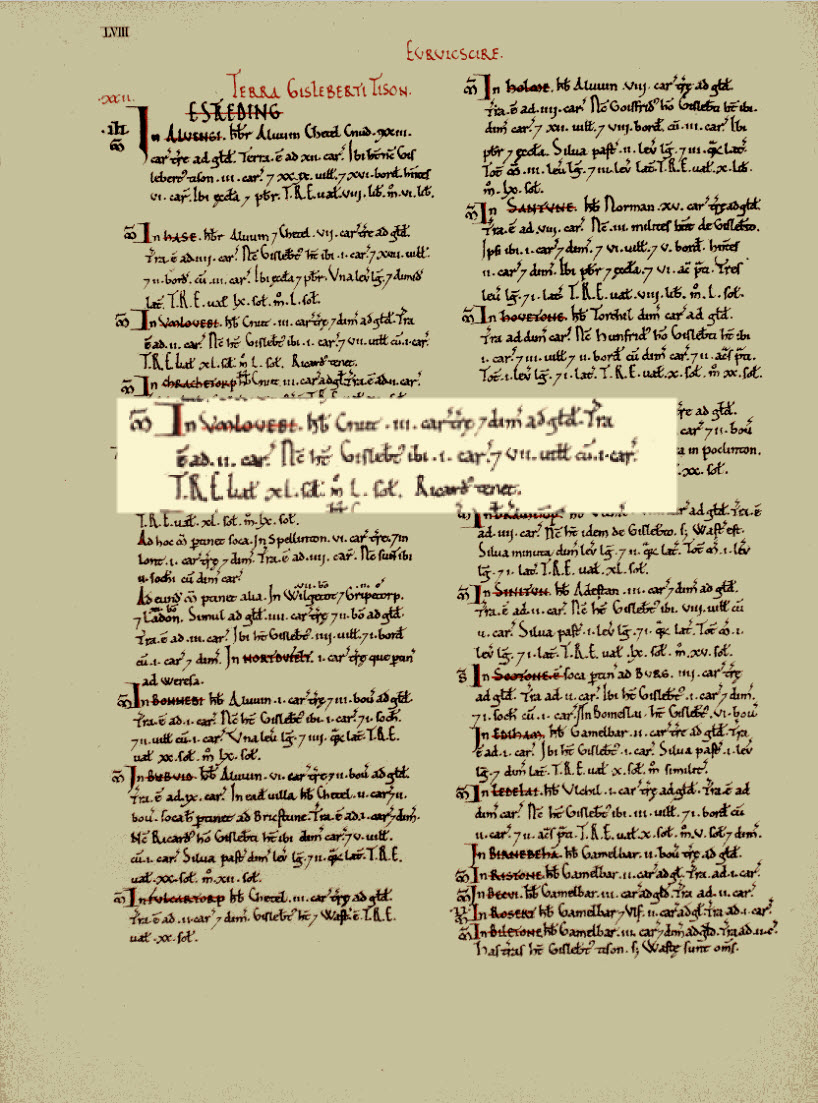 LVIII
EURVICSCIRE.
TERRA GISLEBERTI TISON.
.XXII.
ESTREDING
.iii. M̃ In ALVENGI. hb̄r Aluuin Chetel Cnud .xxiii.
car̄ tr̄e ad gld̄. Terra . ē ad xii. car̄. Ibi
tison . iii. car̄. 7
vi. car̄. Ibi ęccła 7 pb̄r. T.R.E. uał viii. lib̄. m̊ vi. lib̄.
M̃ In HASE. hb̄r Aluuin 7 Chetel. vii. car̄ tr̄e ad gld̄.
Tr̄a . ē ad .iiii. car̄. Nc̄ Gislebt̄ ht̄ ibi .i. car̄. 7 xxiii. uiłł.
7 ii. bord̄. cū .iii. car̄. Ibi ęccła 7 pb̄r. Vna leū lḡ. 7 dimid̄
lat̄. T.R.E. uał lx. soł. m̊ .l. soł.
M̃ In VMLOVEBI. hb̄ Cnut .iii. car̄ tr̄e 7 dim̄ ad gld̄. Tr̄a
ē ad .ii. car̄. Nc̄ ht̄ Gislebt̄ ibi .i. car̄. 7 vii. uiłł cū .i. car̄.
T.R.E. uał xl. soł. m̊ l. soł. Ricard̄ tenet.
M̃ In CHRACHETORP hb̄ Cnut .iii. car̄ ad gld̄. Tr̄a . ē ad .ii. car̄.
M̃ In VMLOVEBI. hb̄ Cnut .iii. car̄ tr̄e 7 dim̄ ad gld̄. Tr̄a
ē ad .ii. car̄. Nc̄ ht̄ Gislebt̄ ibi .i. car̄. 7 vii. uiłł cū .i. car̄.
T.R.E. uał xl. soł. m̊ l. soł. Ricard̄ tenet.
T.R.E. uał xl. soł. m̊ lx. soł.
Ad hoc m̄ ptinet soca. In Spellinton. vi. car̄ tr̄e. 7 in
Lont .i. car̄ tr̄e 7 dim̄. Tr̄a . ē ad .iiii. car̄. Nc̄ sunt ibi
ii. sochi cū dim̄ car̄.
Ad eund̄ m̄ ptinet alia. In Wilgetot 7 Gripetorp.
7 Ladon. Simul ad gld̄ .iiii. car̄ tr̄e 7 ii. bo ad gld̄.
Tr̄a . ē ad .iii. car̄. Ibi ht̄ Gislebt̄ .iiii. uiłł. 7 i. bord̄
cū .i. car̄ 7 dim̄. In .i. car̄ tr̄e que ptin̄
ad Weresa.
M̃ In BONNEBI hb̄ Aluuin .i. car̄ tr̄e 7 iii. bou ad gld̄.
Tr̄a . ē ad .i. car̄. Nc̄ ht̄ Gislebt̄ ibi .i. car̄. 7 i. soch̄.
7 ii. uiłł cū .i. car̄. Vna leū lḡ. 7 iiii. q̄x lat̄. T.R.E.
uał xx. soł. m̊ lx. soł.
M̃ In BUBUID. hb̄ Aluuin. vi. car̄ tr̄e 7 ii. bou ad gld̄.
Tr̄a . ē ad .ix. car̄. In ead̄ uilla hb̄ Chetel .ii. car̄ 7 ii.
bou. soca ptinet ad Bricstune. Tr̄a . ē ad .i. car̄ 7 dim̄.
Nc̄ Ricard̄ hō Gislebti ht̄ ibi dim̄ car̄. 7 v. uiłł.
cū .i. car̄. Silua past̄ dim̄ leū lḡ. 7 ii. q̄x lat̄. T.R.E.
uał xx. soł. m̊ xii. soł.
M̃ In FULCARTORP hb̄ Chetel .iii. car̄ tr̄e ad gld̄.
Tr̄a . ē ad .ii. car̄ 7 dim̄. Gislebt̄ ht̄ 7 Wast̄ . ē. T.R.E.
uał xx. soł.
M̃ In HOLME. hb̄ Aluuin. viii. car̄ tr̄e ad gld̄.
Tr̄a . ē ad .iiii. car̄. Nc̄ Goisfrid̄ hō Gislebti ht̄ ibi.
dim̄ car̄. 7 xii. uiłł. 7 viii. bord̄. cū .iii. car̄. Ibi
pb̄r 7 ęccła. Silua past̄ .ii. leū lḡ. 7 iii. q̄x lat̄.
Tot̄ m̄ .iii. leū lḡ. 7 ii. leū lat̄. T.R.E. uał x. lib̄.
m̊ lx. soł.
M̃ In SANTUNE. hb̄ Norman. xv. car̄ tr̄e ad gld̄.
Tr̄a . ē ad .viii. car̄. Nc̄ .iii. milites de Gislebto.
Ipsi ibi .i. car̄ 7 dim̄. 7 vi. uiłł. 7 v. bord̄. hntes
ii. car̄ 7 dim̄. Ibi pb̄r 7 ęccła. 7 vi. ac̄ p̄ti. Tres
leū lḡ. 7 i. lat̄. T.R.E. uał viii. lib̄. m̊ l. soł.
M̃ In HOVETONE. hb̄ Torchil dim̄ car̄ ad gld̄.
Tr̄a ad dim̄ car̄. Nc̄ Hunfrid̄ hō Gislebti ht̄ ibi
i. car̄. 7 iii. uiłł 7 ii. bord̄ cū dim̄ car̄. 7 ii. ac̄s p̄ti.
Tot̄ .i. leū lḡ. 7 i. lat̄. T.R.E. uał x. soł. m̊ xx. soł.
tr̄e ad gld̄.
car̄ 7 ii. bou
in poclinton.
xx. soł.
car̄ ad gld̄. Tr̄a . ē
ad .iii. car̄. Nc̄ ht̄ idem de Gislebto. s; Wast̄ est.
Silua minuta dim̄ leū lḡ. 7 ii. q̄x lat̄. Tot̄ m̄ .i. leū
lḡ. 7 i. lat̄. T.R.E. uał xl. soł.
M̃ In SINITUN. hb̄ Adestan .iii. car̄ 7 dim̄ ad gld̄.
Tr̄a . ē ad .ii. car̄. Nc̄ ht̄ Gislebt̄ ibi. viii. uiłł cū
ii. car̄. Silua past̄ .i. leū lḡ. 7 i. q̄x lat̄. Tot̄ m̄ .i.
leū lḡ. 7 i. lat̄. T.R.E. uał lx. soł. m̊ xv. soł.
soca ptin̄ ad BURG. iiii. car̄ tr̄e
ad gld̄. Tr̄a ad .ii. car̄. Ibi ht̄ Gislebt̄ .i. car̄ 7 dim̄.
7 i. soch̄ cū .i. car̄. In Domeslai ht̄ Gislebt̄. vi. bou
In EDIHAM. hb̄ Gamelbar .ii. car̄ tr̄e ad gld̄. Tr̄a
ē ad .i. car̄. Ibi ht̄ Gislebt̄ .i. car̄. Silua past̄ .i. leū
lḡ. 7 dim̄ lat̄. T.R.E. uał x. soł. m̊ similit̄.
M̃ In LEDELAI. hb̄ Vlchil .i. car̄ tr̄e ad gld̄. Tr̄a . ē ad
dim̄ car̄. Nc̄ ht̄ Gislebt̄ ibi .iii. uiłł. 7 i. bord̄ cū
ii. car̄. 7 ii. ac̄s p̄ti. T.R.E. uał x. soł. m̊ v. soł. 7 dim̄.
In BIARNEBEHA. hb̄ Gamelbar .ii. bou tr̄e ad gld̄.
M̃ In RISTONE. hb̄ Gamelbar .ii. car̄ ad gld̄. Tr̄a ad .i. car̄.
M̃ In BECVI. hb̄ Gamelbar .iii. car̄ ad gld̄. Tr̄a ad .ii. car̄.
In ROSERT hb̄ Gamelbar 7 Vlf. ii. car̄ ad gl. Tr̄a ad .i. car̄.
M̃ In BILETONE hb̄ Gamelbar .iii. car̄ 7 dim̄ ad gld̄. Tr̄a ad .ii. c̄.
has tr̄as ht̄ Gislebt̄ tison. s; Wastę sunt om̄s.